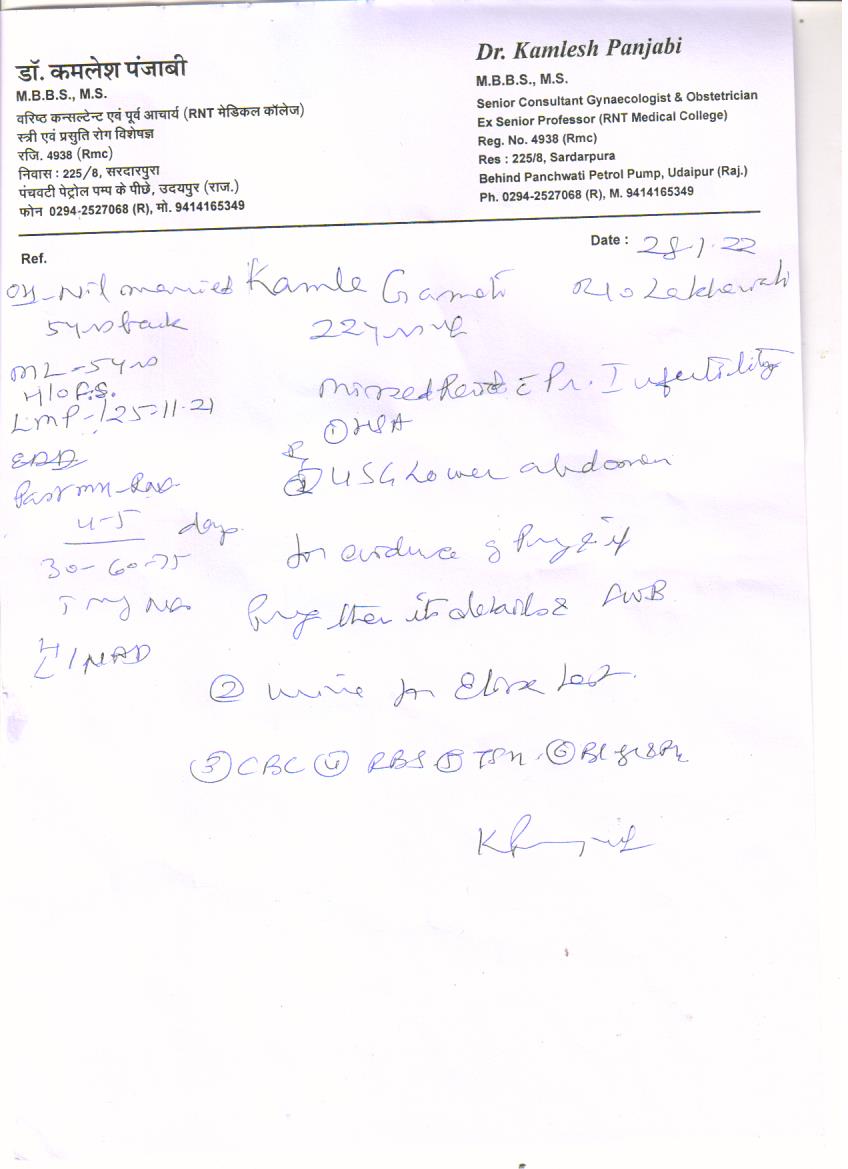 डॉ. कमलेश पंजाबी
M.B.B.S., M.S.
वरिष्ठ कन्सल्टेन्ट एवं पूर्व आचार्य (RNT मेडिकल कॉलेज)
स्त्री एवं प्रसुति रोग विशेषज्ञ
रजि. 4938 (Rmc)
निवास : 225/8, सरदारपुरा
पंचवटी पेट्रोल पम्प के पीछे, उदयपुर (राज.)
फोन 0294-2527068 (R), मो. 9414165349
Dr. Kamlesh Panjabi
M.B.B.S., M.S.
Senior Consultant Gynaecologist & Obstetrician
Ex Senior Professor (RNT Medical College)
Reg. No. 4938 (Rmc)
Res : 225/8, Sardarpura
Behind Panchwati Petrol Pump, Udaipur (Raj.)
Ph. 0294-2527068 (R), M. 9414165349
Ref.
Date : 28.1.22
OH-Nil married
5yrs back
ML-5yrs
LMP-25-11-21
EDD
4-5 days
30-60-75
NAD
Kamle Gameti R/o
22yrs
Missed Period c Pr. Infertility
① HSA
① USG Lower abdomen
for evidence of Preg & if
Preg then its details & FWB
② urine for Elisa test.
③ CBC ④ RBS ⑤ TSH. ⑥ Bl gr & Rh